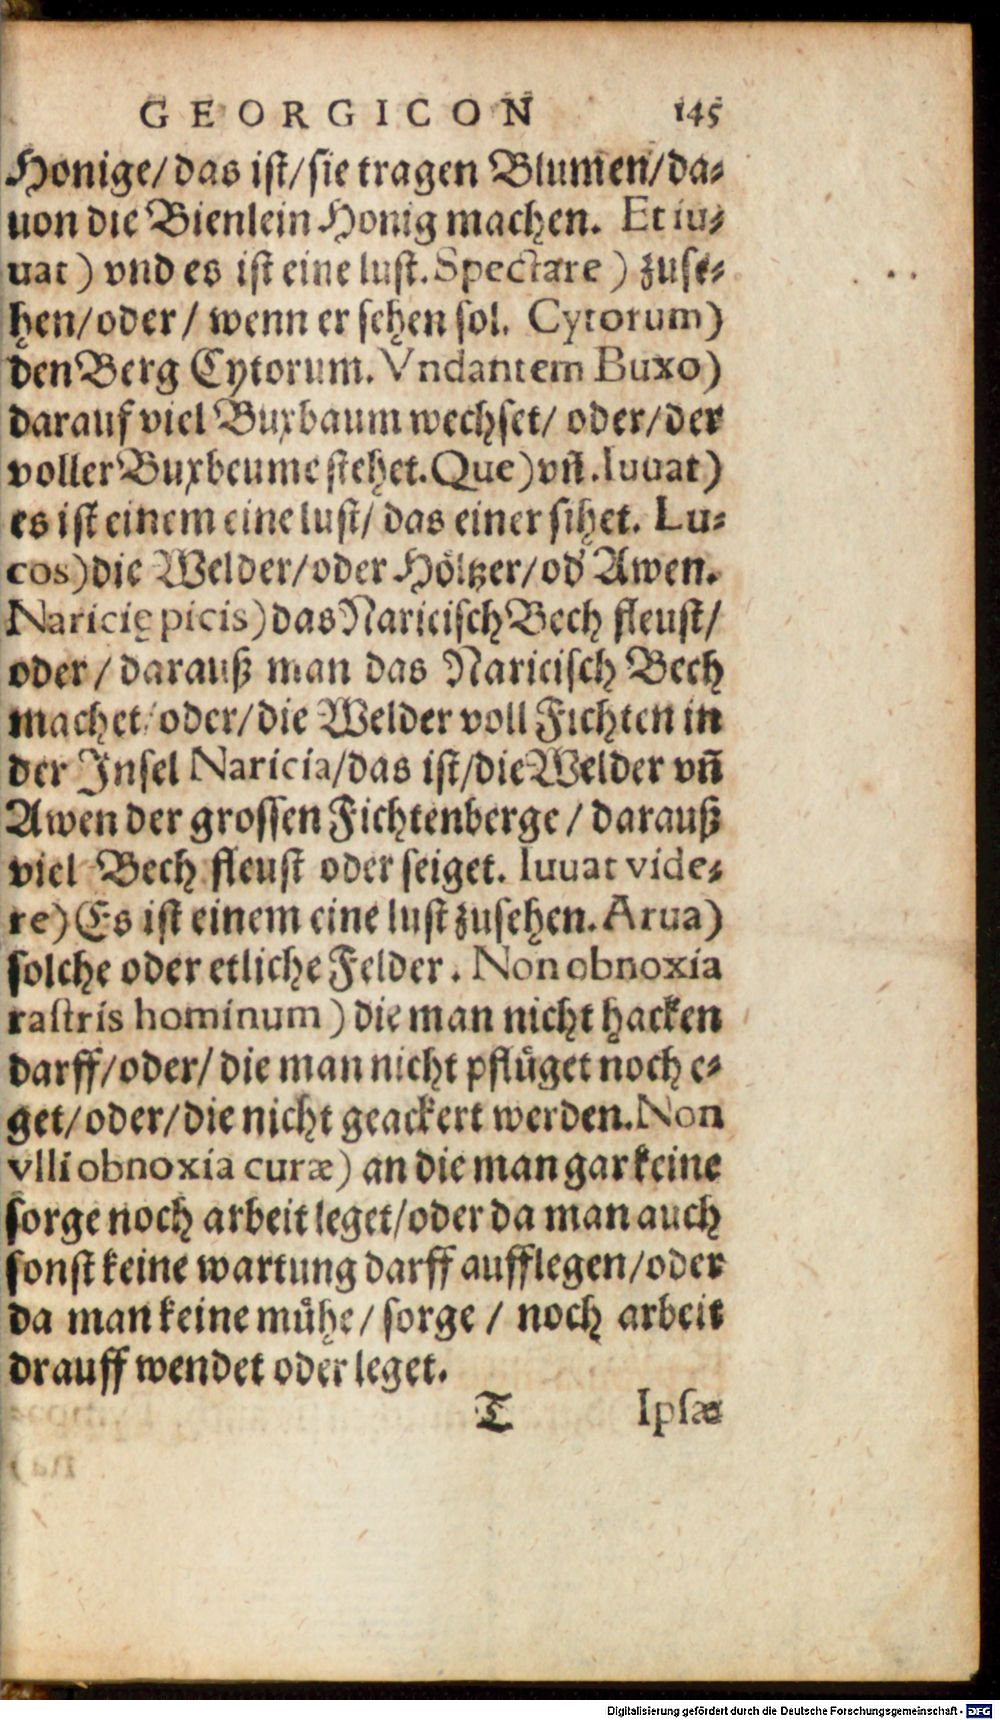 GEORGICON 145
Honige/das ist/sie tragen Blumen/da-
uon die Bienlein Honig machen. Et iu-
uat) vnd es ist eine lust. Spectare) zuse-
hen/oder/ wenn er sehen sol. Cytorum)
den Berg Cytorum. Vndantem Buxo)
darauf viel Buxbaum wechset/ oder/der
voller Buxbeume stehet. Que) vñ. Iuuat)
es ist einem eine lust/ das einer sihet. Lu-
cos) die Welder/oder Höltzer/od' Awen.
Naricię picis) das Naricisch Bech fleust/
oder/ darauß man das Naricisch Bech
machet/oder/die Welder voll Fichten in
der Insel Naricia/das ist/die Welder vñ
Awen der grossen Fichtenberge/ darauß
viel Bech fleust oder seiget. Iuuat vide-
re) Es ist einem eine lust zusehen. Arua)
solche oder etliche Felder. Non obnoxia
rastris hominum) die man nicht hacken
darff/oder/ die man nicht pflüget noch e-
get/oder/die nicht geackert werden. Non
vlli obnoxia curæ) an die man gar keine
sorge noch arbeit leget/oder da man auch
sonst keine wartung darff aufflegen/oder
da man keine mühe/ sorge/ noch arbeit
drauff wendet oder leget.
T Ipsæ
Digitalisierung gefördert durch die Deutsche Forschungsgemeinschaft - DFG